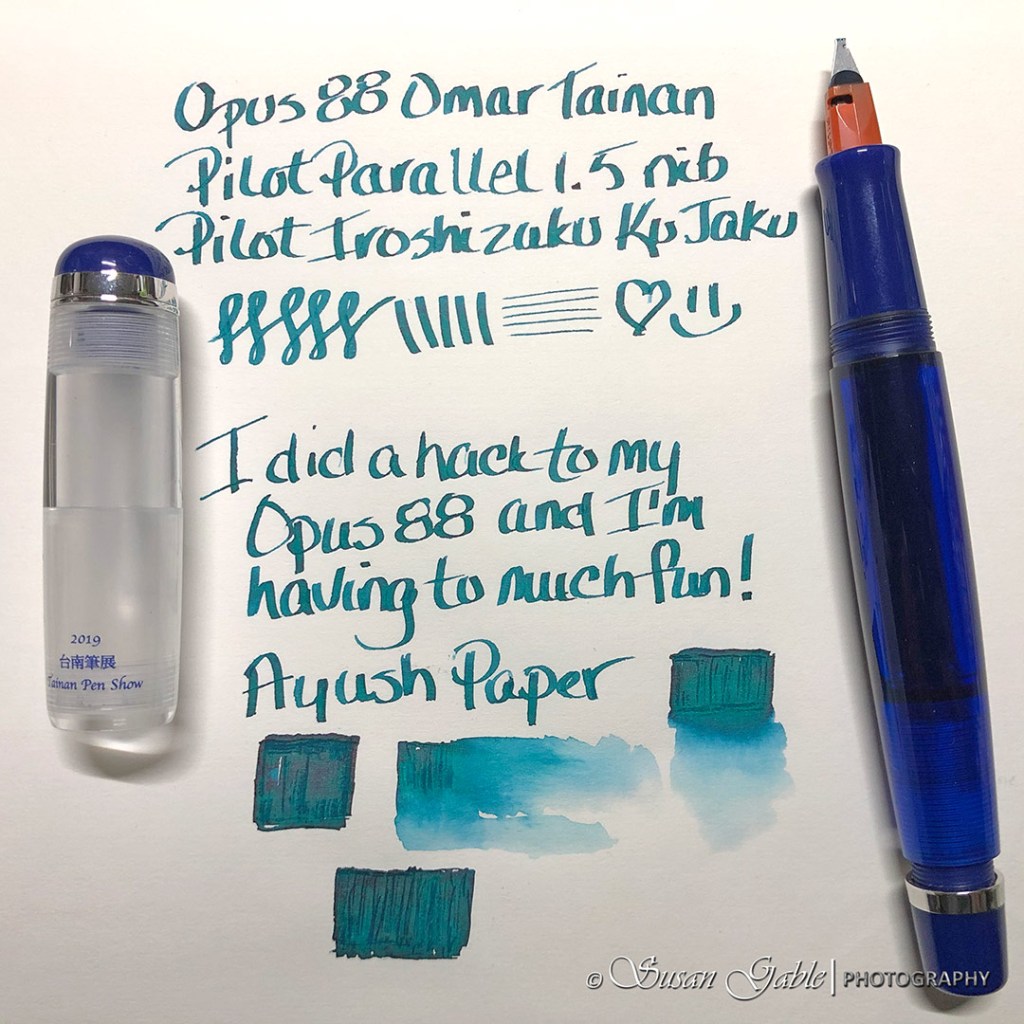 Opus 88 Omar Tainan
Pilot Parallel 1.5 nib
Pilot Iroshizuku Ku Jaku
I did a hack to my
Opus 88 and I'm
having to much fun!
Ayush Paper
2019
台南筆展
Tainan Pen Show
© Susan Gable | PHOTOGRAPHY